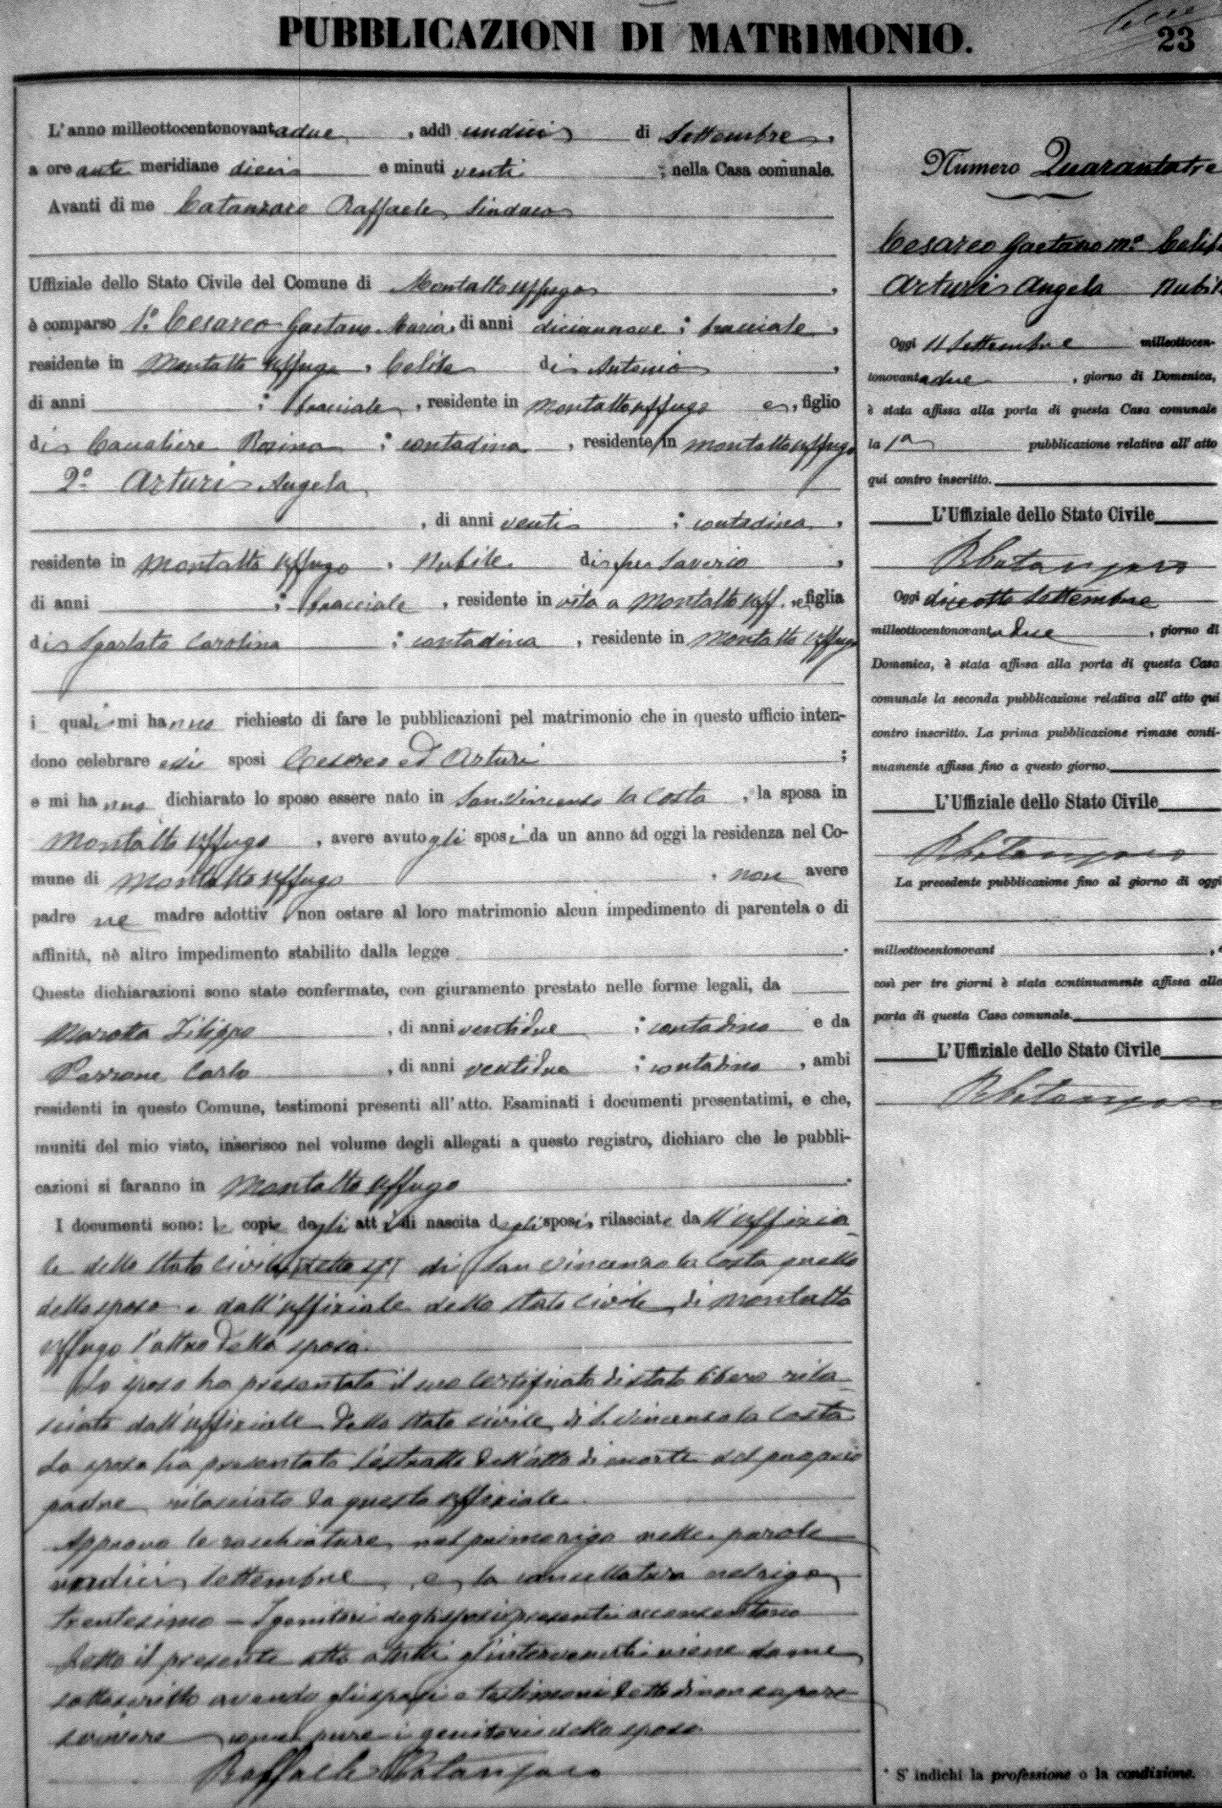 PUBBLICAZIONI DI MATRIMONIO.
23
L'anno milleottocentonovantadue, addì undici di Settembre,
a ore anti meridiane dieci e minuti venti, nella Casa comunale.
Avanti di me Catanzaro Raffaele Sindaco
Uffiziale dello Stato Civile del Comune di Montalto Uffugo,
è comparso 1.° Cesareo Gaetano Maria, di anni diciannove; bracciale,
residente in Montalto Uffugo, Celibe di Antonio,
di anni ; bracciale, residente in Montalto Uffugo e, figlio
di Cavaliere Rosina; contadina, residente in Montalto Uffugo
2.° Arturi Angela
, di anni venti; contadina,
residente in Montalto Uffugo, Nubile di fu Saverio,
di anni ; bracciale, residente in vita a Montalto Uff. e figlia
di Sgarlato Carolina; contadina, residente in Montalto Uffugo
i quali mi hanno richiesto di fare le pubblicazioni pel matrimonio che in questo ufficio inten-
dono celebrare essi sposi Cesareo ed Arturi;
e mi hanno dichiarato lo sposo essere nato in San Vincenzo la Costa, la sposa in
Montalto Uffugo, avere avuto gli sposi da un anno ad oggi la residenza nel Co-
mune di Montalto Uffugo, non avere
padre ne madre adottiv non ostare al loro matrimonio alcun impedimento di parentela o di
affinità, nè altro impedimento stabilito dalla legge.
Queste dichiarazioni sono state confermate, con giuramento prestato nelle forme legali, da
Marotta Filippo, di anni ventidue; contadino e da
Perrone Carlo, di anni ventidue; contadino, ambi
residenti in questo Comune, testimoni presenti all'atto. Esaminati i documenti presentatimi, e che,
muniti del mio visto, inserisco nel volume degli allegati a questo registro, dichiaro che le pubbli-
cazioni si faranno in Montalto Uffugo.
I documenti sono: le copie degli atti di nascita degli sposi rilasciate dall'uffizia-
le dello stato civile di San Vincenzo la Costa quello
dello sposo e dall'uffiziale dello stato civile di Montalto
Uffugo l'altro della sposa.
Lo sposo ha presentato il suo certificato di stato libero rila-
sciato dall'uffiziale dello stato civile di S. Vincenzo la Costa
La sposa ha presentato l'estratto dell'atto di morte del proprio
padre rilasciato da questo uffiziale.
Approvo le raschiature nel primo rigo nelle parole
undici Settembre, e la cancellatura nel rigo
trentesimo — I genitori degli sposi presenti acconsentono
Letto il presente atto a tutti gl'intervenuti viene da me
sottoscritto avendo gli sposi e testimoni detto di non sapere
scrivere come pure i genitori dello sposo
Raffaele Catanzaro
Numero Quarantatre
Cesareo Gaetano M.ª Celibe
Arturi Angela Nubile
Oggi 11 Settembre milleottocen-
tonovantadue, giorno di Domenica,
è stata affissa alla porta di questa Casa comunale
la 1ª pubblicazione relativa all'atto
qui contro inscritto.
L'Uffiziale dello Stato Civile
R Catanzaro
Oggi diciotto Settembre
milleottocentonovantadue, giorno di
Domenica, è stata affissa alla porta di questa Casa
comunale la seconda pubblicazione relativa all'atto qui
contro inscritto. La prima pubblicazione rimase conti-
nuamente affissa fino a questo giorno.
L'Uffiziale dello Stato Civile
R Catanzaro
La precedente pubblicazione fino al giorno di oggi
milleottocentonovant ,
così per tre giorni è stata continuamente affissa alla
porta di questa Casa comunale.
L'Uffiziale dello Stato Civile
R Catanzaro
* S'indichi la professione o la condizione.